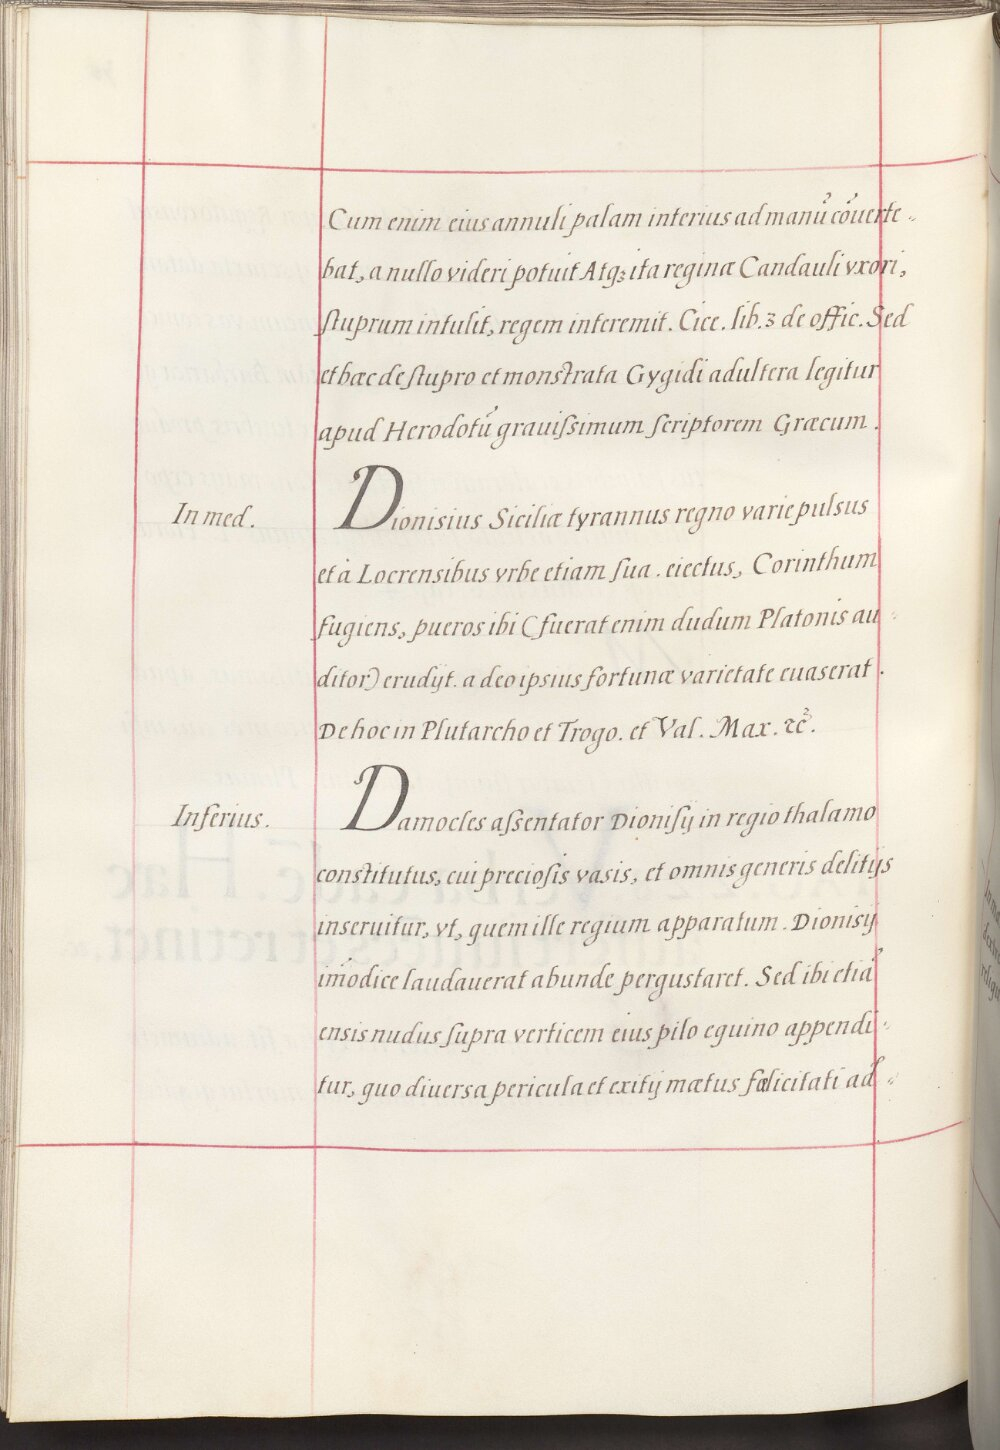 Cum enim eius annuli palam interius ad manū cōuerte-
bat, a nullo videri potuit Atq; ita reginæ Candauli vxori,
ſtuprum intulit, regem interemit. Cice. lib. 3 de offic. Sed
et hæc de ſtupro et monstrata Gygidi adultera legitur
apud Herodotū grauiſsimum ſcriptorem Græcum.
In med.
Dionisius Siciliæ tyrannus regno varie pulsus
et à Locrensibus vrbe etiam ſua . eiectus, Corinthum
fugiens, pueros ibi (fuerat enim dudum Platonis au-
ditor) erudijt. a deo ipsius fortunæ varietate euaserat .
De hoc in Plutarcho et Trogo. et Val. Max. ꝛc̄.
Inferius.
Damocles aſsentator Dionisij in regio thalamo
constitutus, cui preciosis vasis, et omnis generis delitijs
inseruitur, vt, quem ille regium apparatum . Dionisij
im̄odice laudauerat abunde pergustaret. Sed ibi etiā
ensis nudus ſupra verticem eius pilo equino appendi-
tur, quo diuersa pericula et exitij mætus fœlicitati ad-